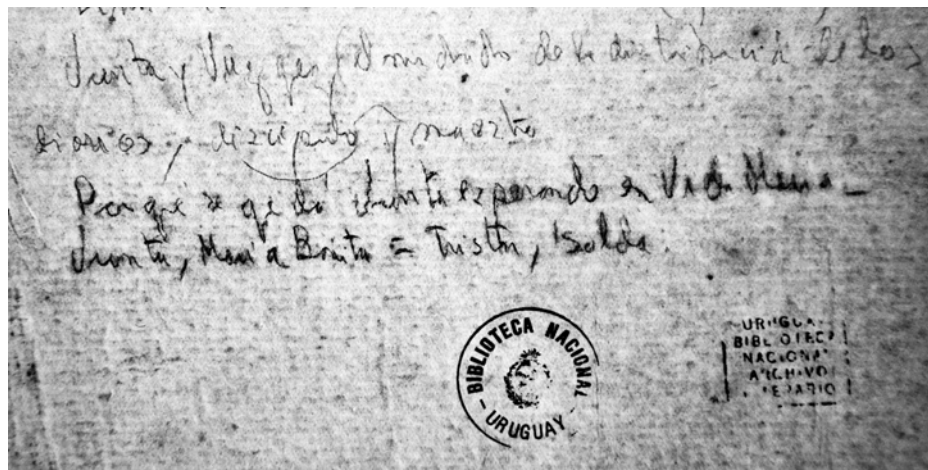 Junta y Vázquez, el sindicato de la distribución de los
diarios, discípulo y maestro
Por qué se quedó Junta esperando en Vida Nueva_
Junta, María Bonita = Tristán, Isolda.
BIBLIOTECA NACIONAL
- URUGUAY -
URUGUAY
BIBLIOTECA
NACIONAL
ARCHIVO
LITERARIO